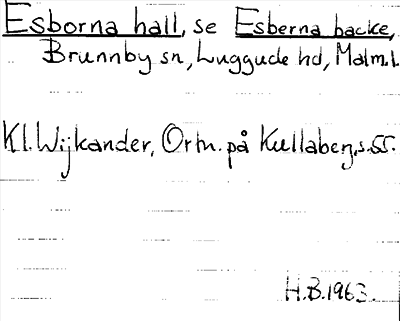 Esborna hall, se Esberna backe,
Brunnby sn, Luggude hd, Malm.l.
Kl. Wijkander, Ortn. på Kullaberg, s. 55.
H.B. 1963.